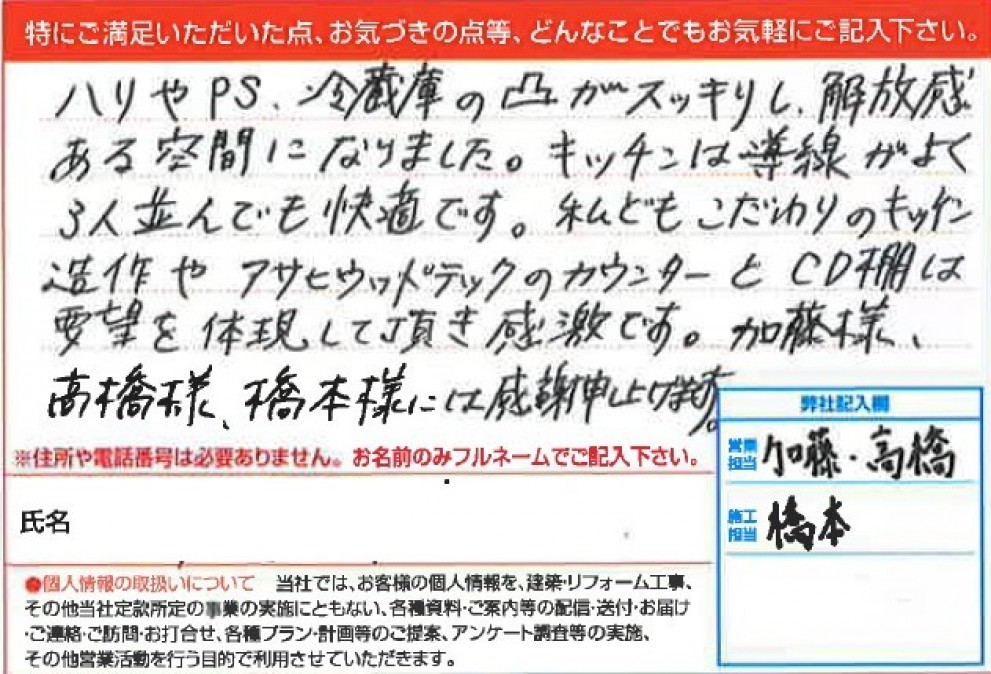 特にご満足いただいた点、お気づきの点等、どんなことでもお気軽にご記入下さい。
ハリやPS、冷蔵庫の凸がスッキりし、解放感
ある空間になりました。キッチンは導線がよく
3人並んでも快適です。私どもこだわりのキッチン
造作やアサヒウッドテックのカウンターとCD棚は
要望を体現して頂き感激です。加藤様、
高橋様、橋本様には感謝申し上げます。
※住所や電話番号は必要ありません。お名前のみフルネームでご記入下さい。
氏名
弊社記入欄
営業担当 加藤・高橋
施工担当 橋本
●個人情報の取扱いについて 当社では、お客様の個人情報を、建築・リフォーム工事、
その他当社定款所定の事業の実施にともない、各種資料・ご案内等の配信・送付・お届け
・ご連絡・ご訪問・お打合せ、各種プラン・計画等のご提案、アンケート調査等の実施、
その他営業活動を行う目的で利用させていただきます。